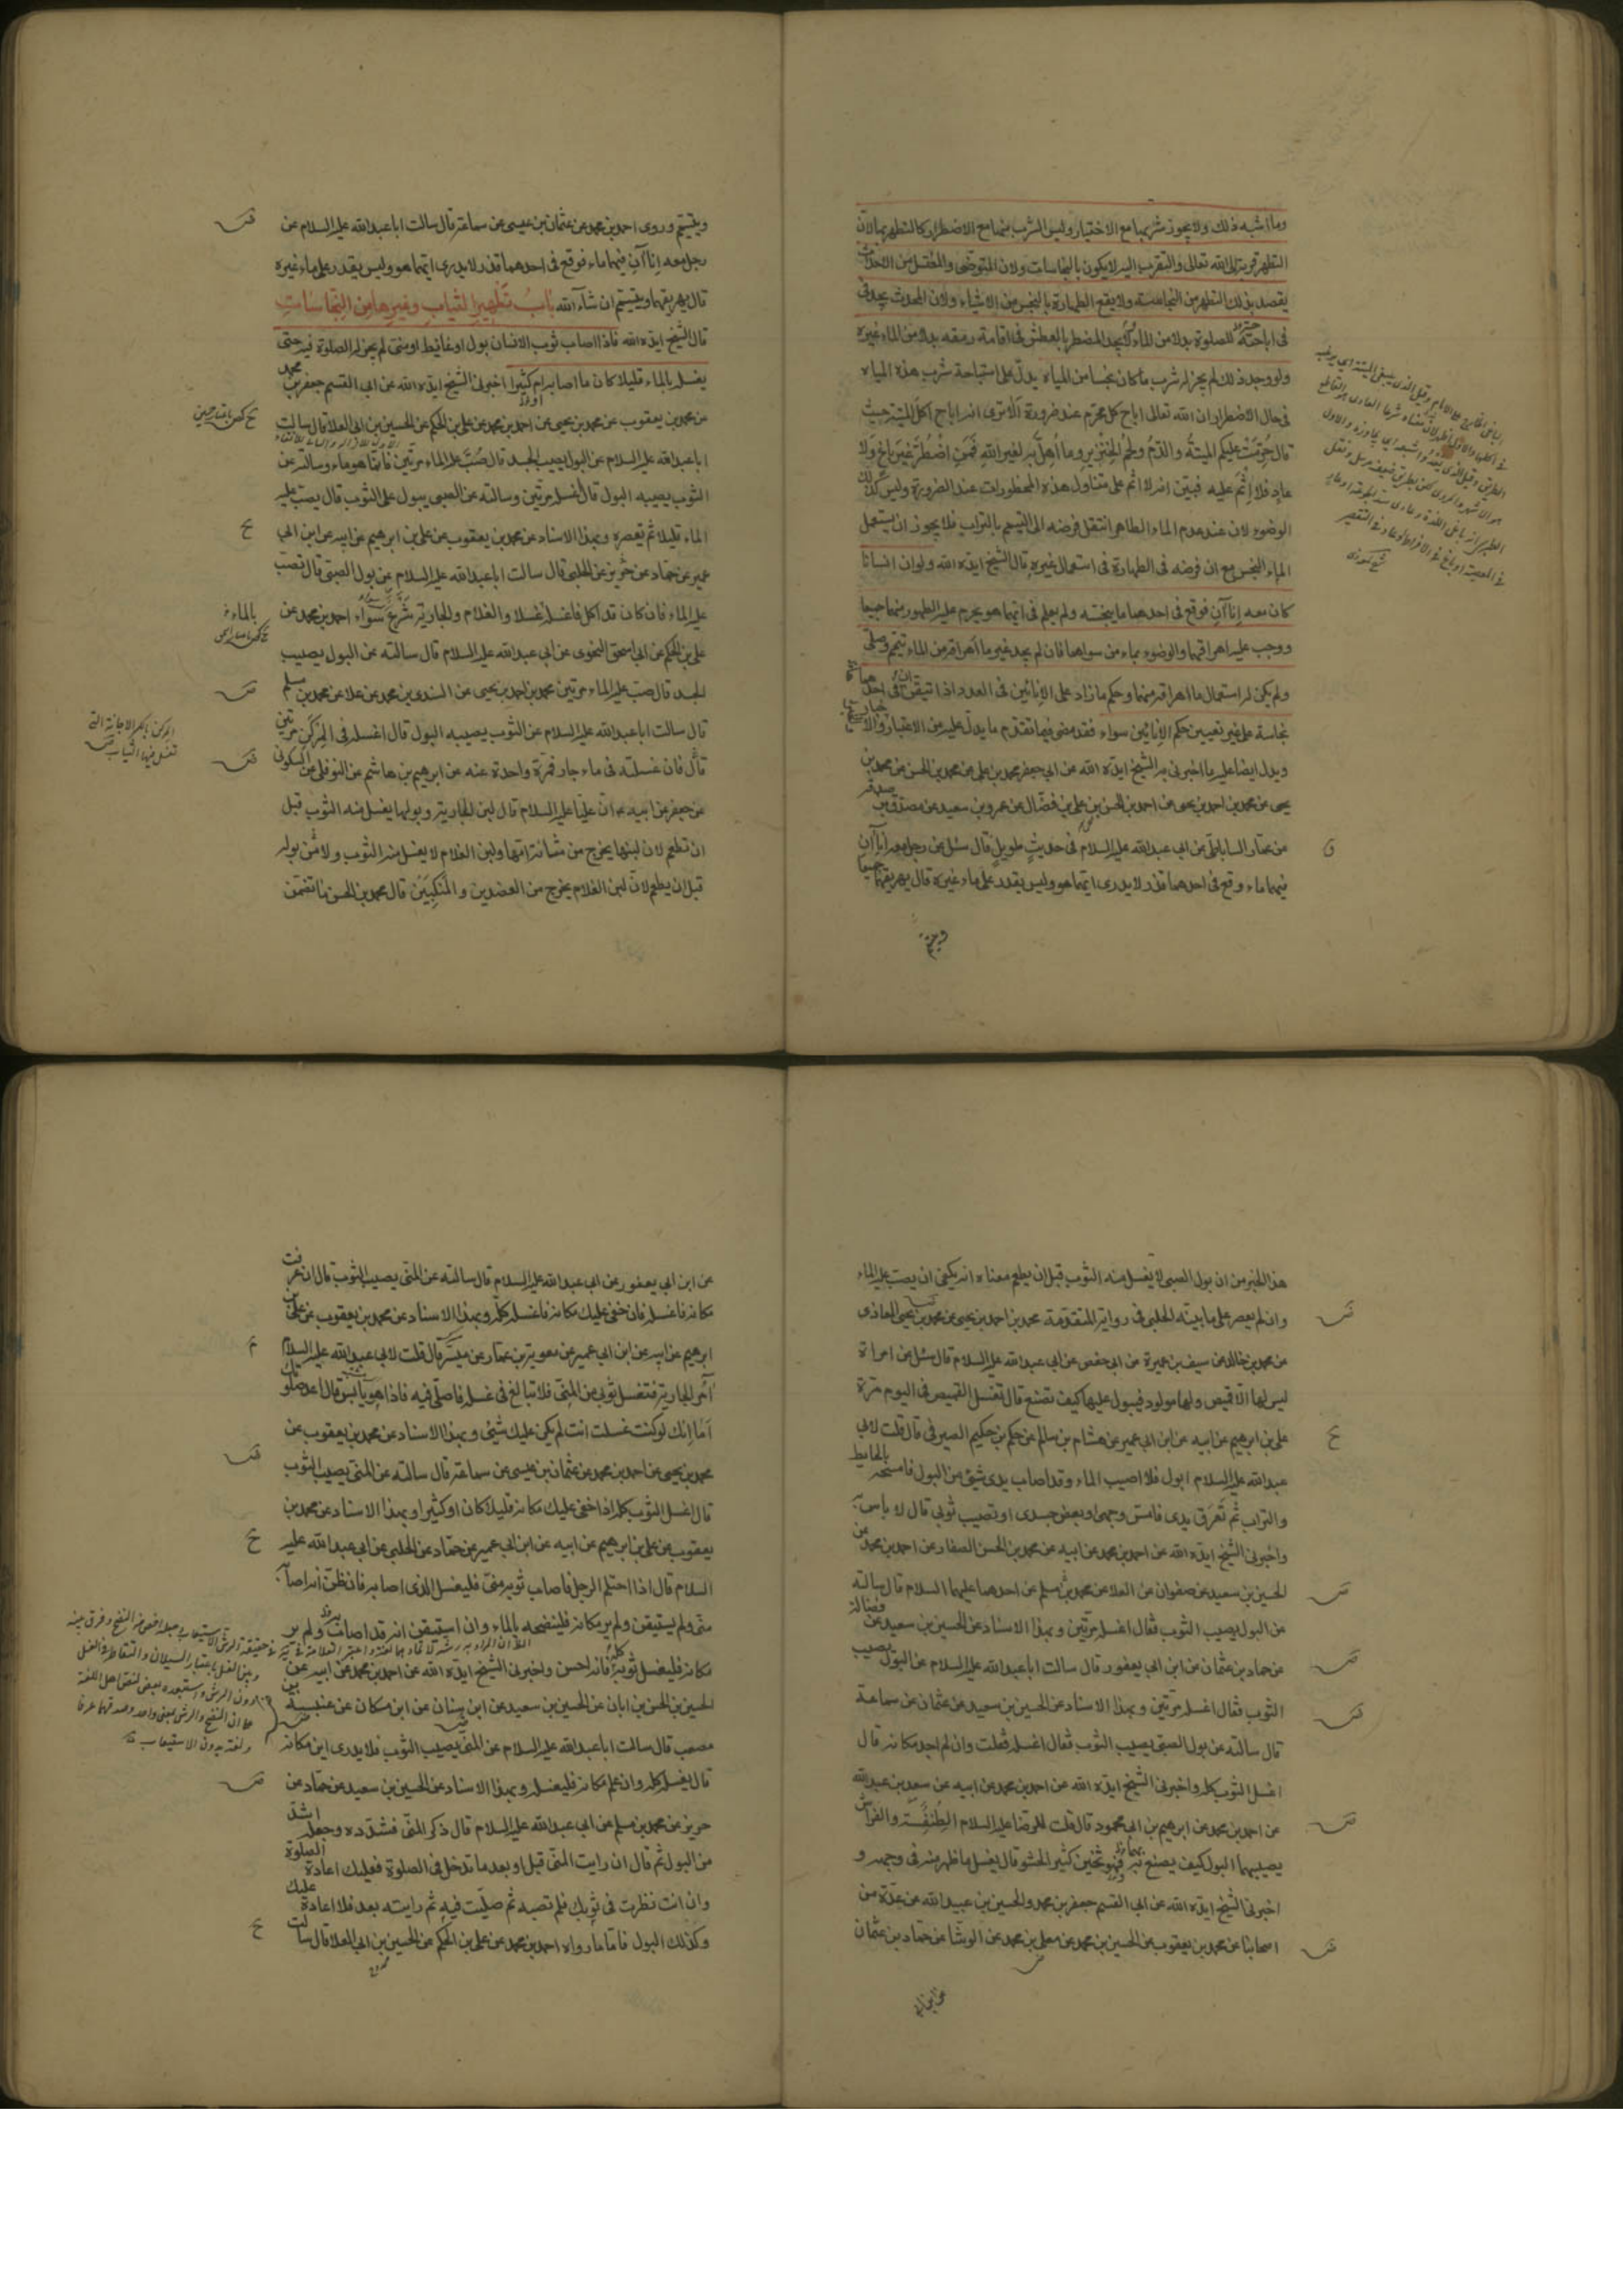 وما اشبه ذلك ولا يجوز شربها مع الاختيار وليس الشرب منها مع الاضطرار كالتطهر بها لان
التطهر قربة الى الله تعالى والتقرب اليه لا يكون بالنجاسات ولان المتوضى والمغتسل من الاحداث
يقصد بذلك التطهر من النجاسة ولا يقع الطهارة بالنجس من الاشياء ولان المحدث يجد
فى اباحته للصلوة بدلا من الماء ولا يجد المضطر بالعطش فى اقامة رمقه بدلا من الماء غيره
ولو وجد ذلك لم يجز له شرب ما كان نجسا من المياه يدل على استباحة شرب هذه المياه
فى حال الاضطرار ان الله تعالى اباح كل محرم عند ضرورة الا ترى انه اباح اكل الميتة حيث
قال حرمت عليكم الميتة والدم ولحم الخنزير وما اهل به لغير الله فمن اضطر غير باغ ولا
عاد فلا اثم عليه فبين انه لا اثم على متناول هذه المحظورات عند الضرورة وليس كذلك
الوضوء لان عند عدم الماء الطاهر انتقل فرضه الى التيمم بالتراب فلا يجوز ان يستعمل
الماء النجس مع ان فرضه فى الطهارة فى استعمال غيره قال الشيخ ايده الله ولو ان انسانا
كان معه إناآن فوقع فى احدهما ما ينجسه ولم يعلم فى ايهما هو يحرم عليه الطهور منهما جميعا
ووجب عليه اهراقهما والوضوء بماء من سواهما فان لم يجد غير ما اهراقه من الماء تيمم وصلى
ولم يكن له استعمال ما اهراقه منهما وحكم ما زاد على الإنائين فى العدد اذا تيقن ان فى احدها
نجاسة على غير تعيين حكم الإنائين سواء فقد مضى فيما تقدم ما يدل عليه من الاعتبار والاخبار
ويدل ايضا عليه ما اخبرنى به الشيخ ايده الله عن ابى جعفر محمد بن على عن محمد بن الحسن عن محمد بن
يحيى عن محمد بن احمد بن يحيى عن احمد بن الحسن بن على بن فضال عن عمرو بن سعيد عن مصدق بن صدقه
عن عمار الساباطى عن ابى عبد الله عليه السلام فى حديث طويل قال سئل عن رجل معه إناآن
فيهما ماء وقع فى احدهما قذر لا يدرى ايهما هو وليس يقدر على ماء غيره قال يهريقهما جميعا
ويتيمم
ويتيمم وروى احمد بن محمد عن عثمان بن عيسى عن سماعة قال سالت ابا عبد الله عليه السلام عن
رجل معه إناآن فيهما ماء فوقع فى احدهما قذر لا يدرى ايهما هو وليس يقدر على ماء غيره
قال يهريقهما ويتيمم ان شاء الله باب تطهير الثياب وغيرها من النجاسات
قال الشيخ ايده الله فاذا اصاب ثوب الانسان بول او غائط او منى لم يجز له الصلوة فيه حتى
يغسله بالماء قليلا كان ما اصابه ام كثيرا اخبرنى الشيخ ايده الله عن ابى القسم جعفر بن محمد
عن محمد بن يعقوب عن محمد بن يحيى عن احمد بن محمد عن على بن الحكم عن الحسين بن ابى العلا قال سالت
ابا عبد الله عليه السلام عن البول يصيب الجسد قال صب عليه الماء مرتين فانما هو ماء وسالته عن
الثوب يصيبه البول قال اغسله مرتين وسالته عن الصبى يبول على الثوب قال يصب عليه
الماء قليلا ثم تعصره وبهذا الاسناد عن محمد بن يعقوب عن على بن ابرهيم عن ابيه عن ابن ابى
عمير عن حماد عن حريز عن الحلبى قال سالت ابا عبد الله عليه السلام عن بول الصبى قال تصب
عليه الماء فان كان قد اكل فاغسله غسلا والغلام والجارية شرع سواء احمد بن محمد عن
بالماء
على بن الحكم عن ابى اسحق النحوى عن ابى عبد الله عليه السلام قال سالته عن البول يصيب
الجسد قال صب عليه الماء مرتين محمد بن احمد بن يحيى عن السندى بن محمد عن علا عن محمد بن مسلم
قال سالت ابا عبد الله عليه السلام عن الثوب يصيبه البول قال اغسله فى المركن مرتين
المركن بالكسر الاجانة التى
تغسل فيها الثياب
قال فان غسلته فى ماء جار فمرة واحدة عنه عن ابرهيم بن هاشم عن النوفلى عن السكونى
عن جعفر عن ابيه ان عليا عليه السلام قال لبن الجارية وبولها يغسل منه الثوب قبل
ان تطعم لان لبنها يخرج من مثانة امها ولبن الغلام لا يغسل منه الثوب ولا من بوله
قبل ان يطعم لان لبن الغلام يخرج من العضدين والمنكبين قال محمد بن الحسن ما تضمن
هذا الخبر من ان بول الصبى لا يغسل منه الثوب قبل ان يطعم معناه انه يكفى ان يصب عليه الماء
وان لم يعصر على ما بينه الحلبى فى روايته المتقدمة محمد بن احمد بن يحيى عن محمد بن يحيى المعاذى
عن محمد بن خالد عن سيف بن عميرة عن ابى حفص عن ابى عبد الله عليه السلام قال سئل عن امراة
ليس لها الا قميص ولها مولود فيبول عليها كيف تصنع قال تغسل القميص فى اليوم مرة
على بن ابرهيم عن ابيه عن ابن ابى عمير عن هشام بن سالم عن حكم بن حكيم الصيرفى قال قلت لابى
عبد الله عليه السلام ابول فلا اصيب الماء وقد اصاب يدى شئ من البول فامسحه بالحايط
والتراب ثم تعرق يدى فامس وجهى او بعض جسدى او تصيب ثوبى قال لا باس به
واخبرنى الشيخ ايده الله عن احمد بن محمد عن ابيه عن محمد بن الحسن الصفار عن احمد بن محمد عن
الحسين بن سعيد عن صفوان عن العلا عن محمد بن مسلم عن احدهما عليهما السلام قال سالته
عن البول يصيب الثوب فقال اغسله مرتين وبهذا الاسناد عن الحسين بن سعيد عن فضالة
عن حماد بن عثمان عن ابن ابى يعفور قال سالت ابا عبد الله عليه السلام عن البول يصيب
الثوب فقال اغسله مرتين وبهذا الاسناد عن الحسين بن سعيد عن عثمان عن سماعة
قال سالته عن بول الصبى يصيب الثوب فقال اغسله فقلت وان لم اجد مكانه قال
اغسل الثوب كله واخبرنى الشيخ ايده الله عن احمد بن محمد عن ابيه عن سعد بن عبد الله
عن احمد بن محمد عن ابرهيم بن ابى محمود قال قلت للرضا عليه السلام الطنفسة والفراش
يصيبهما البول كيف يصنع فهو ثخين كثير الحشو قال يغسل ما ظهر منه فى وجهه و
اخبرنى الشيخ ايده الله عن ابى القسم جعفر بن محمد والحسين بن عبيد الله عن عدة من
اصحابنا عن محمد بن يعقوب عن الحسين بن محمد عن معلى بن محمد عن الوشا عن حماد بن عثمان
عن ابن ابى
عن ابن ابى يعفور عن ابى عبد الله عليه السلام قال سالته عن المنى يصيب الثوب قال ان عرفت
مكانه فاغسله فان خفى عليك مكانه فاغسله كله وبهذا الاسناد عن محمد بن يعقوب عن على بن
ابرهيم عن ابيه عن ابن ابى عمير عن معوية بن عمار عن ميسر قال قلت لابى عبد الله عليه السلام
آمر الجارية فتغسل ثوبى من المنى فلا تبالغ فى غسله فاصلى فيه فاذا هو يابس قال اعد صلوتك
أما إنك لو كنت غسلت انت لم يكن عليك شئ وبهذا الاسناد عن محمد بن يعقوب عن
محمد بن يحيى عن احمد بن محمد عن عثمان بن عيسى عن سماعة قال سالته عن المنى يصيب الثوب
قال اغسل الثوب كله اذا خفى عليك مكانه قليلا كان او كثيرا وبهذا الاسناد عن محمد بن
يعقوب عن على بن ابرهيم عن ابيه عن ابن ابى عمير عن حماد عن الحلبى عن ابى عبد الله عليه
السلام قال اذا احتلم الرجل فاصاب ثوبه منى فليغسل الذى اصابه فان ظن انه اصابه
منى ولم يستيقن ولم ير مكانه فلينضحه بالماء وان استيقن انه قد اصابه ولم ير
مكانه فليغسل ثوبه كله فانه احسن واخبرنى الشيخ ايده الله عن احمد بن محمد عن ابيه عن
الحسين بن الحسن بن ابان عن الحسين بن سعيد عن ابن سنان عن ابن مسكان عن عنبسة بن
مصعب قال سالت ابا عبد الله عليه السلام عن المنى يصيب الثوب فلا يدرى اين مكانه
قال يغسله كله وان علم مكانه فليغسله وبهذا الاسناد عن الحسين بن سعيد عن حماد عن
حريز عن محمد بن مسلم عن ابى عبد الله عليه السلام قال ذكر المنى فشدده وجعله اشد
من البول ثم قال ان رايت المنى قبل او بعد ما تدخل فى الصلوة فعليك اعادة الصلوة
وان انت نظرت فى ثوبك فلم تصبه ثم صليت فيه ثم رايته بعد فلا اعادة عليك
وكذلك البول فاما ما رواه احمد بن محمد عن على بن الحكم عن الحسين بن ابى العلا قال سالت